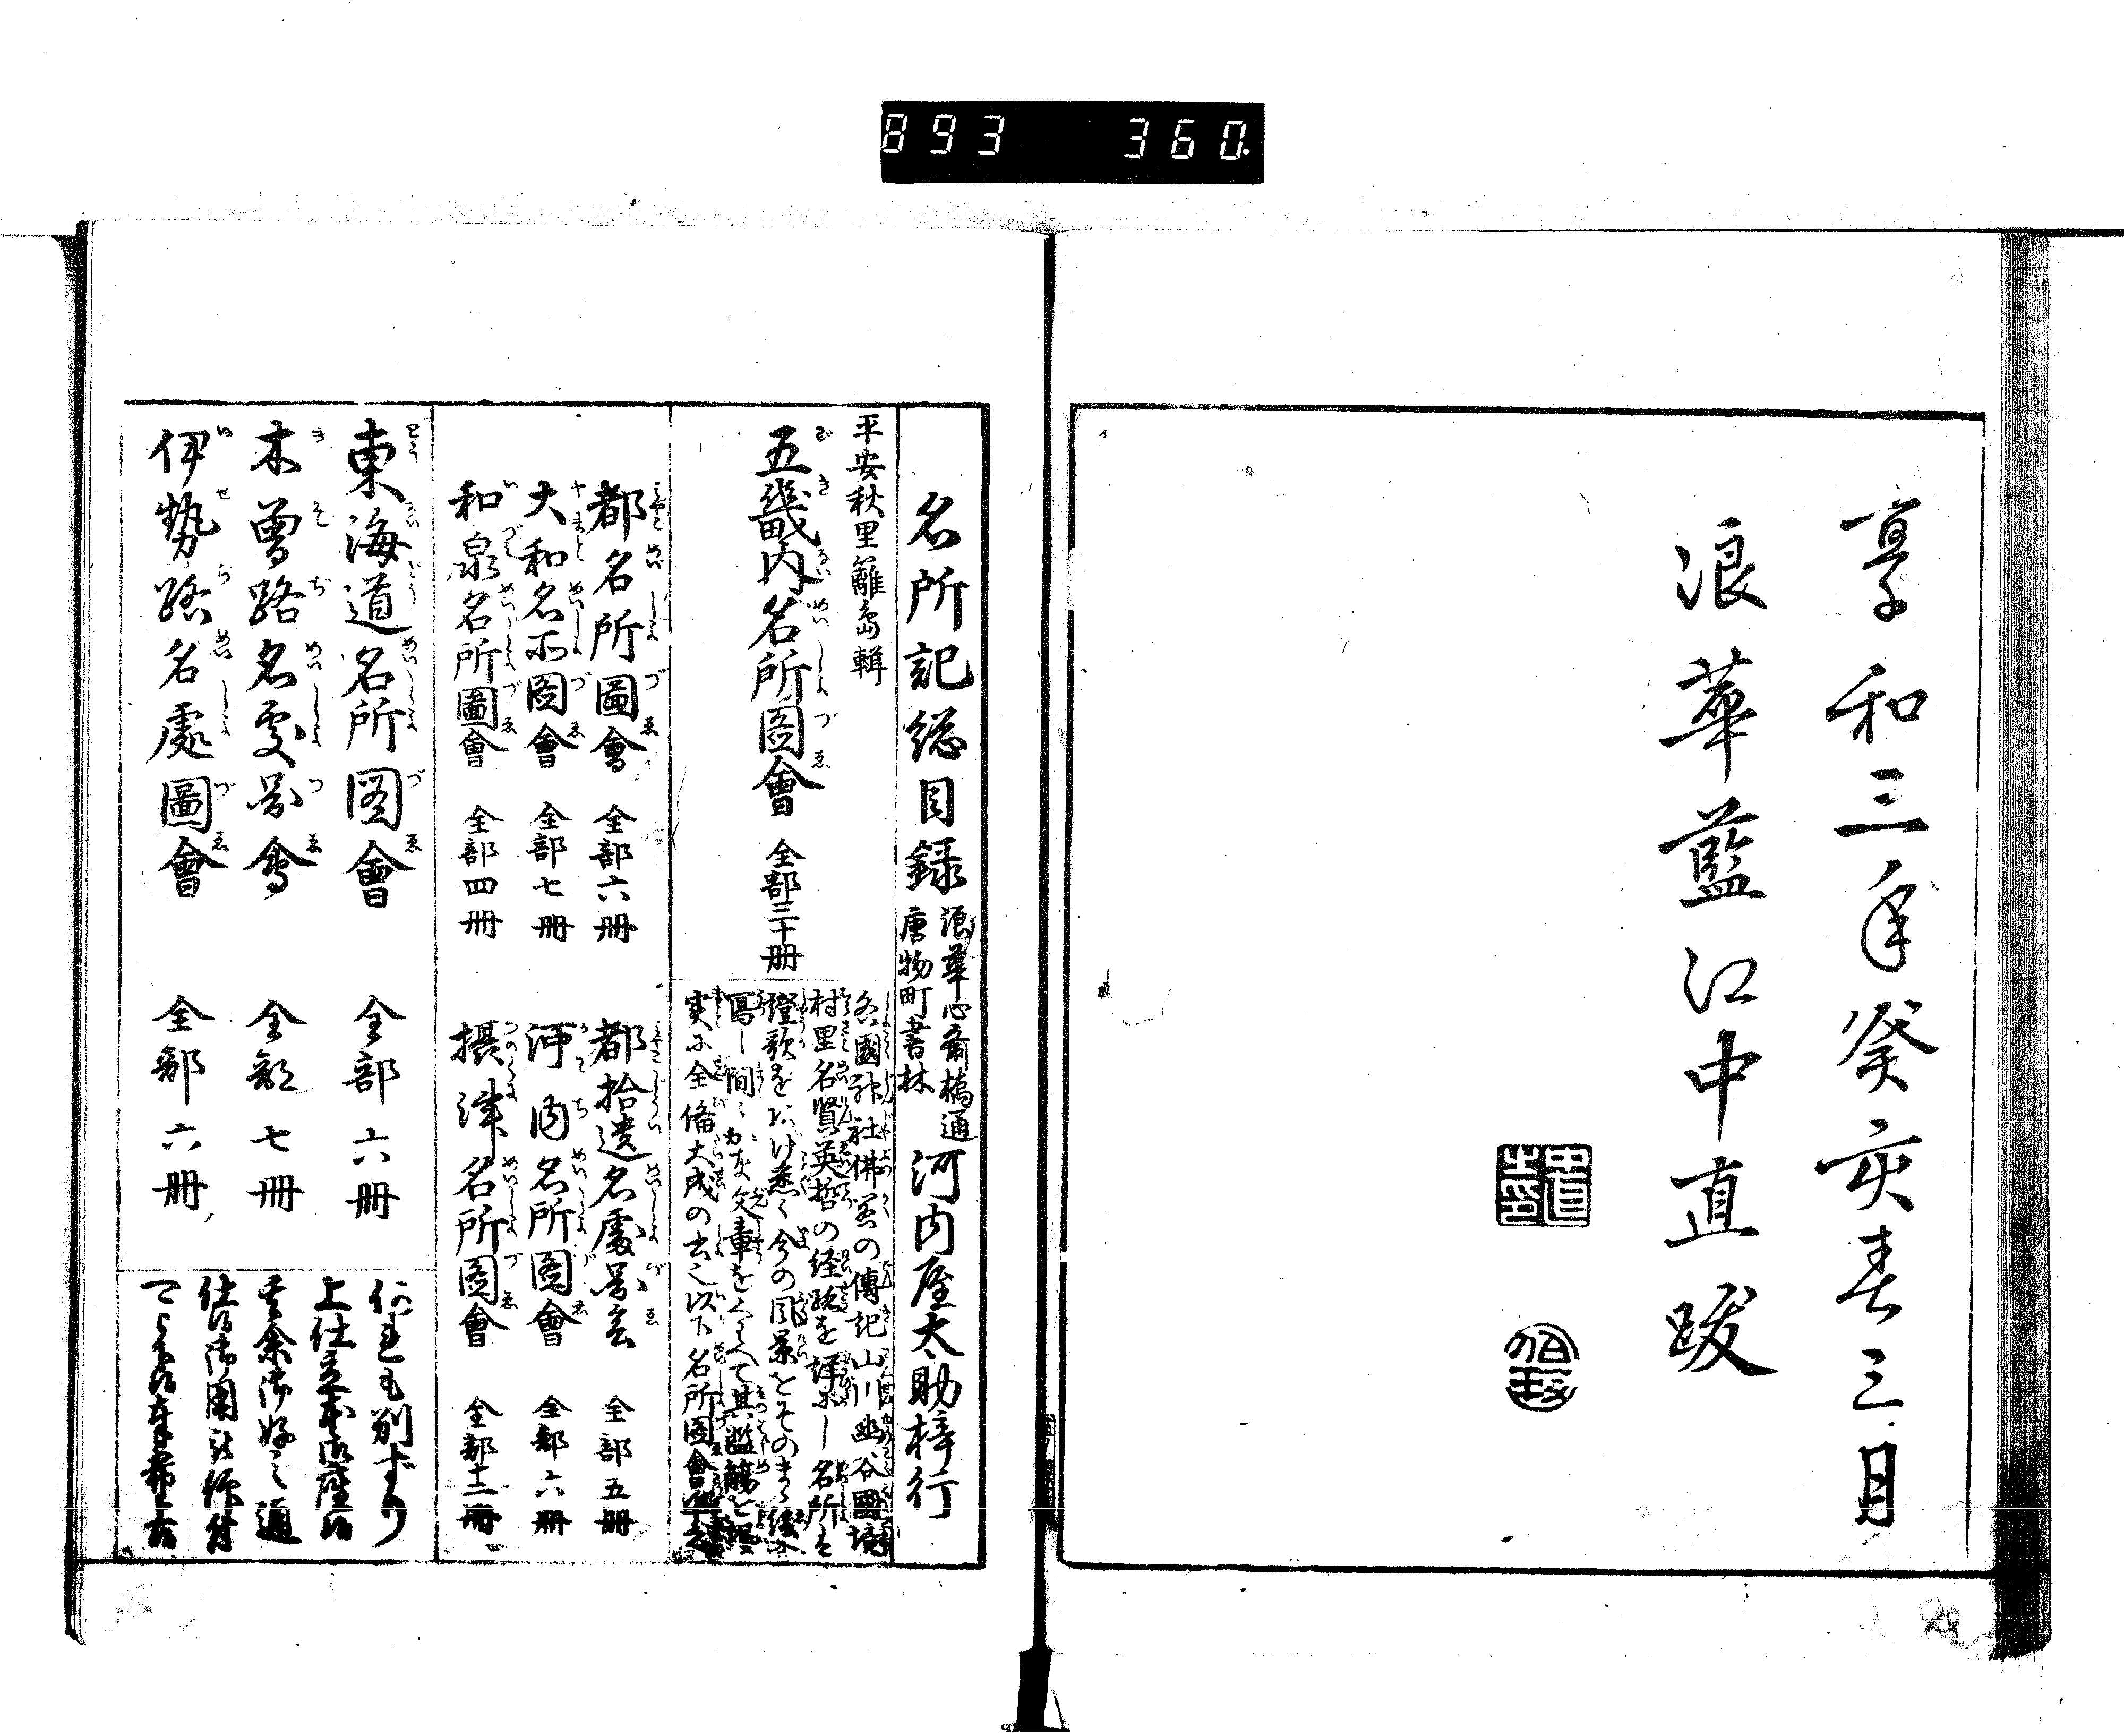 893 360
享和三年癸亥春三月
浪華藍江中直跋
名所記総目録 浪華心斎橋通
唐物町書林 河内屋太助梓行
平安秋里籬島輯
五畿内名所図會 全部三十册
各國神社佛閣の傳記山川幽谷國境
村里名賢英哲の経跡を詳にし名所を
證歌をだけ悉く今の風景をそのまゝ
写し間〻かな文章をくはへて其濫觴を
実に全備大成の書也以下名所図會
都名所圖會 全部六册
都拾遺名處図会 全部五册
大和名所圖會 全部七册
河内名所圖會 全部六册
和泉名所圖會 全部四册
摂津名所圖會 全部十二册
東海道名所図會 全部六册
木曽路名処図會 全部七册
伊勢路名處圖會 全部六册
何れも別ずり
上仕立本御座候
其余御好之通
仕候御用被仰付